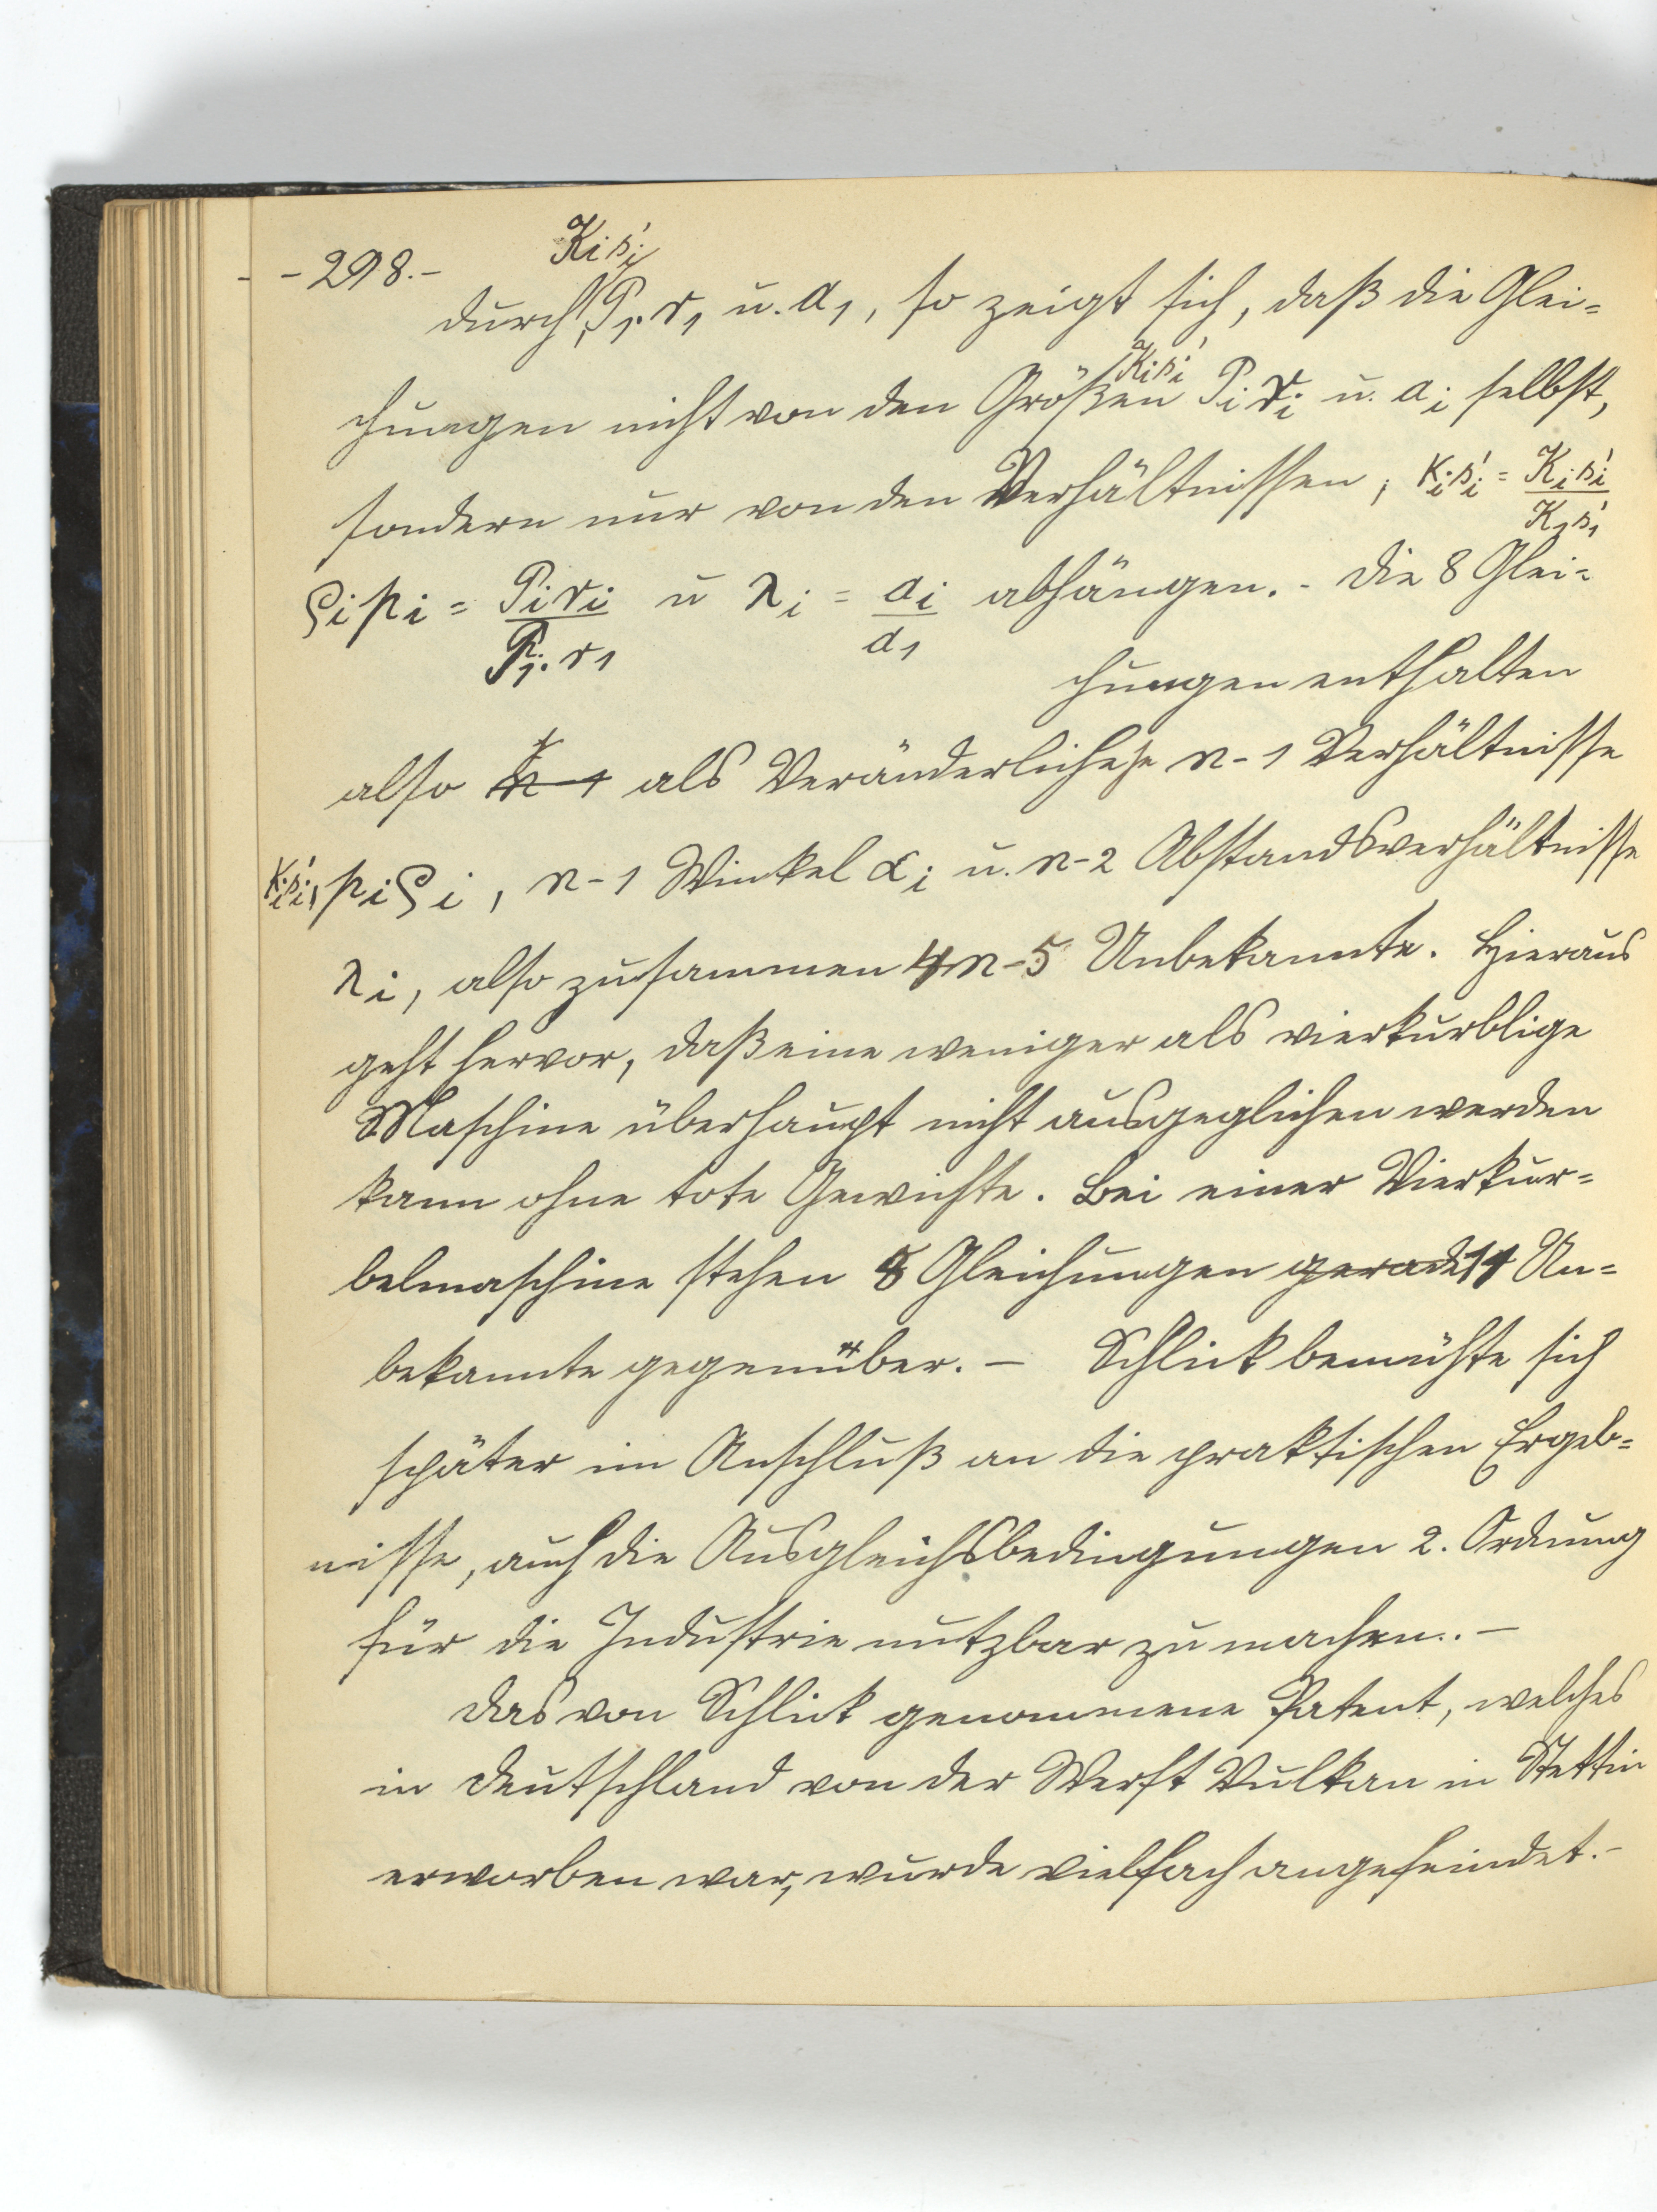 - - 298. -
K₁s'₁
durch P₁.r₁ u. a₁, so zeigt sich, daß die Glei=
Kᵢs'ᵢ
chungen nicht von den Größen Pᵢ rᵢ u. aᵢ selbst,
sondern nur von den Verhältnissen; κᵢs'ᵢ = Kᵢs'ᵢ / K₁s'₁
ϱᵢpᵢ = Pᵢrᵢ / P₁.r₁ u λᵢ = aᵢ / a₁ abhängen. - Die 8 Glei=
chungen enthalten
also n-1 als Veränderliche n-1 Verhältnisse
κᵢs'ᵢ, pᵢϱᵢ, n-1 Winkel αᵢ u. n-2 Abstandsverhältnisse
λᵢ, also zusammen 4n-5 Unbekannte. Hieraus
geht hervor, daß eine weniger als vierkurblige
Maschine überhaupt nicht ausgeglichen werden
kann ohne tote Gewichte. Bei einer Vierkur=
belmaschine stehen 8 Gleichungen gerade 11 Un=
bekannte gegenüber. – Schlick bemühte sich
später im Anschluß an die praktischen Ergeb=
nisse, auch die Ausgleichsbedingungen 2. Ordnung
für die Industrie nutzbar zu machen. –
Das von Schlick genommene Patent, welches
in Deutschland von der Werft Vulkan in Stettin
erworben war, wurde vielfach angefeindet. -